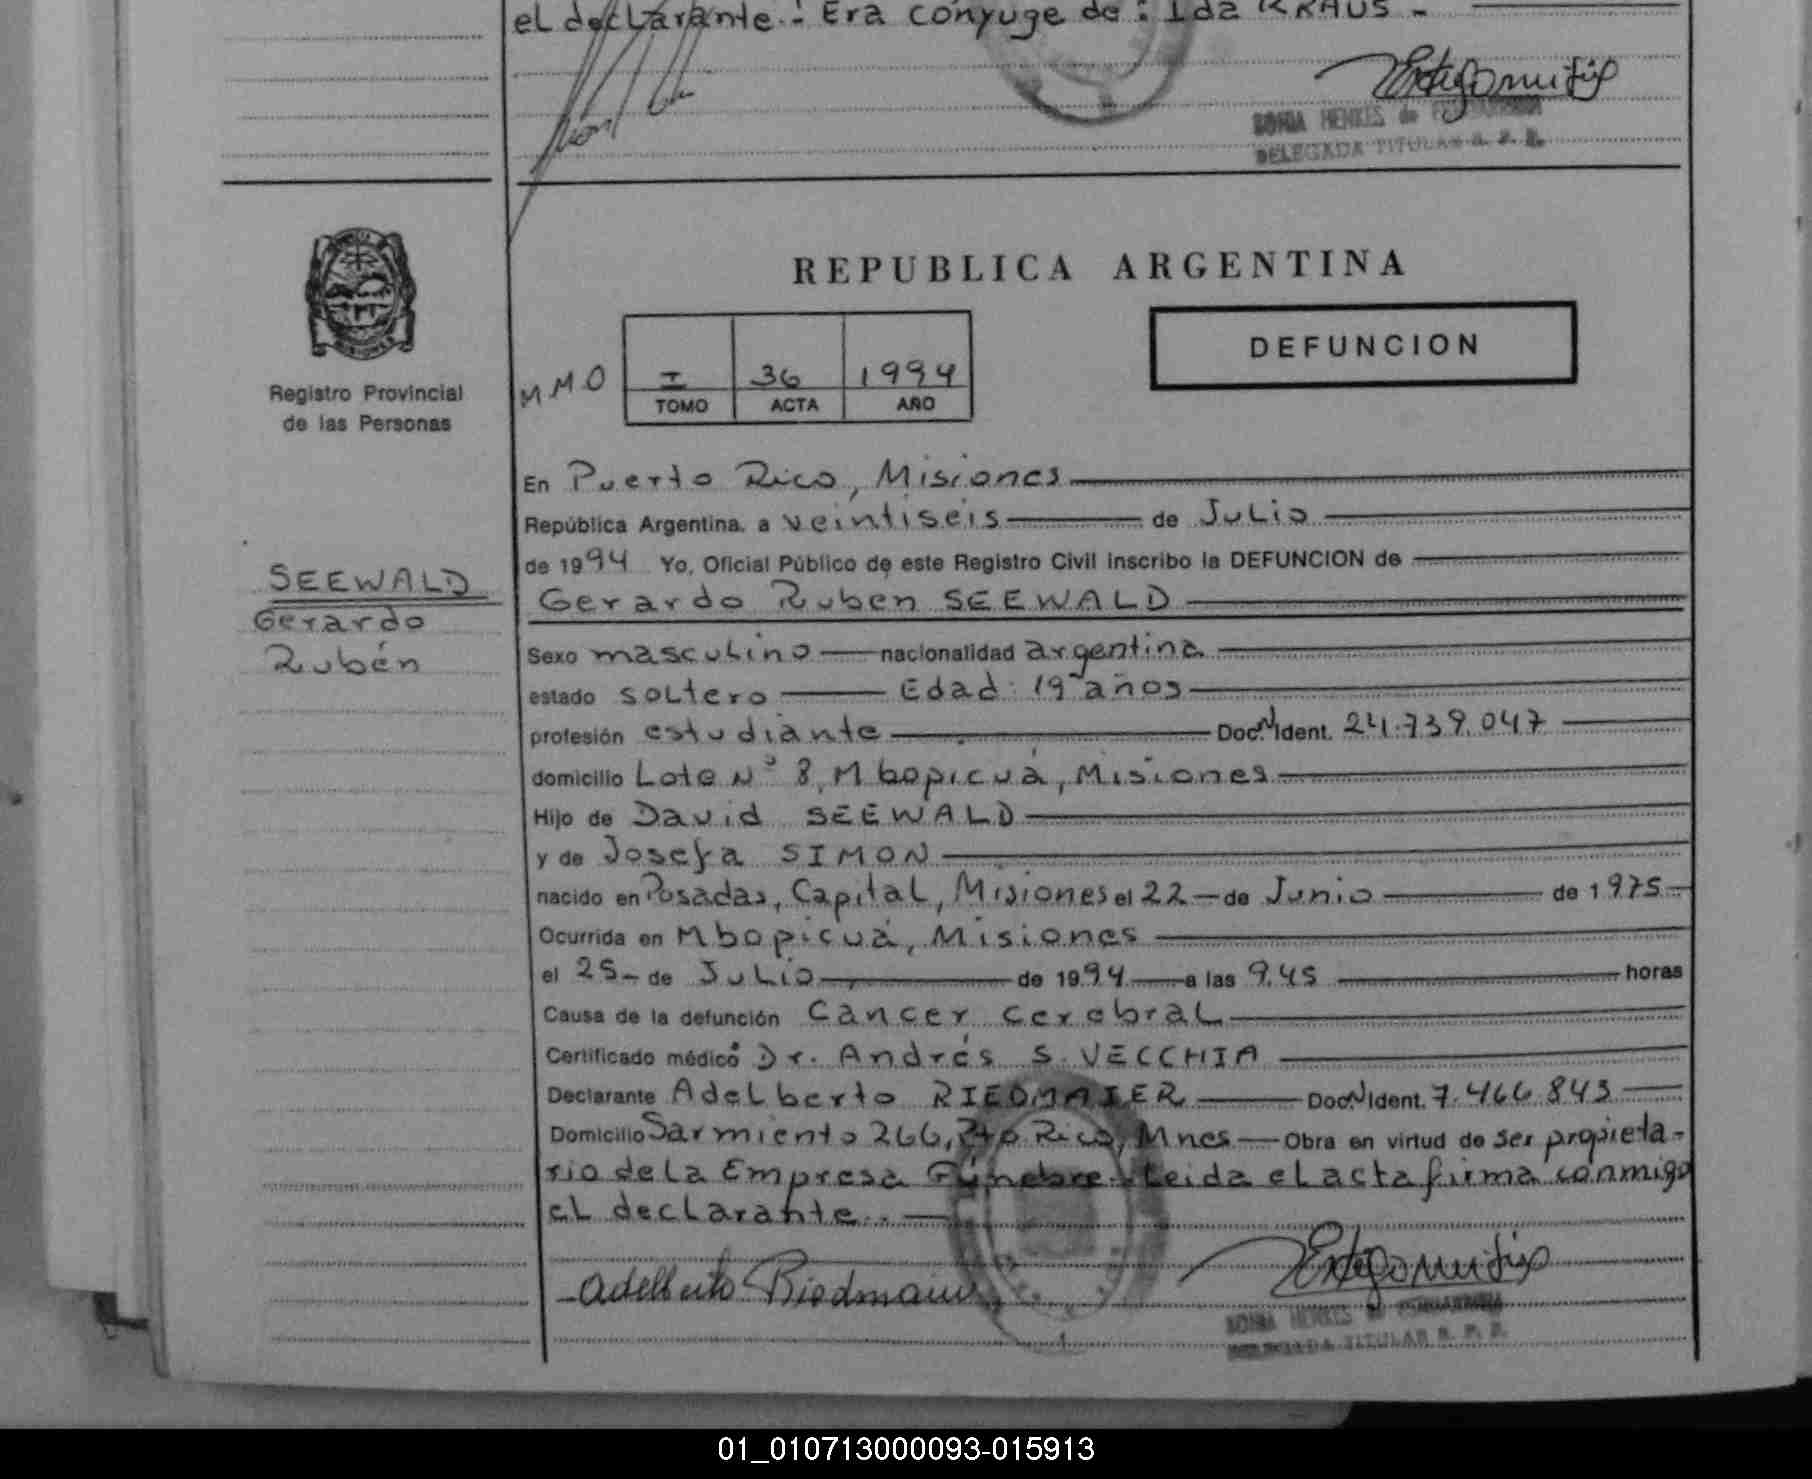 el declarante.- Era cónyuge de: Ida KRAUS -
SONIA HENKES de
DELEGADA TITULAR R. P. P.
MISIONES
Registro Provincial
de las Personas
REPUBLICA ARGENTINA
DEFUNCION
MMO
I 36 1994
TOMO ACTA AÑO
En Puerto Rico, Misiones
República Argentina, a veintiseis de Julio
de 1994 Yo, Oficial Público de este Registro Civil inscribo la DEFUNCION de
SEEWALD
Gerardo
Rubén
Gerardo Ruben SEEWALD
Sexo masculino nacionalidad argentina
estado soltero Edad: 19 años
profesión estudiante Doc. N Ident. 24.739.047
domicilio Lote N° 8, Mbopicuá, Misiones
Hijo de David SEEWALD
y de Josefa SIMON
nacido en Posadas, Capital, Misiones el 22 de Junio de 1975
Ocurrida en Mbopicuá, Misiones
el 25 de Julio de 1994 a las 9.45 horas
Causa de la defunción Cancer cerebral
Certificado médico Dr. Andrés S. VECCHIA
Declarante Adelberto RIEDMAIER Doc. N Ident. 7.466.843
Domicilio Sarmiento 266, Pto Rico, Mnes Obra en virtud de ser propieta-
rio de la Empresa Fúnebre. Leida el acta firma conmigo
el declarante..
Adelberto Riedmaier
SONIA HENKES de
DELEGADA TITULAR R. P. P.
01_010713000093-015913